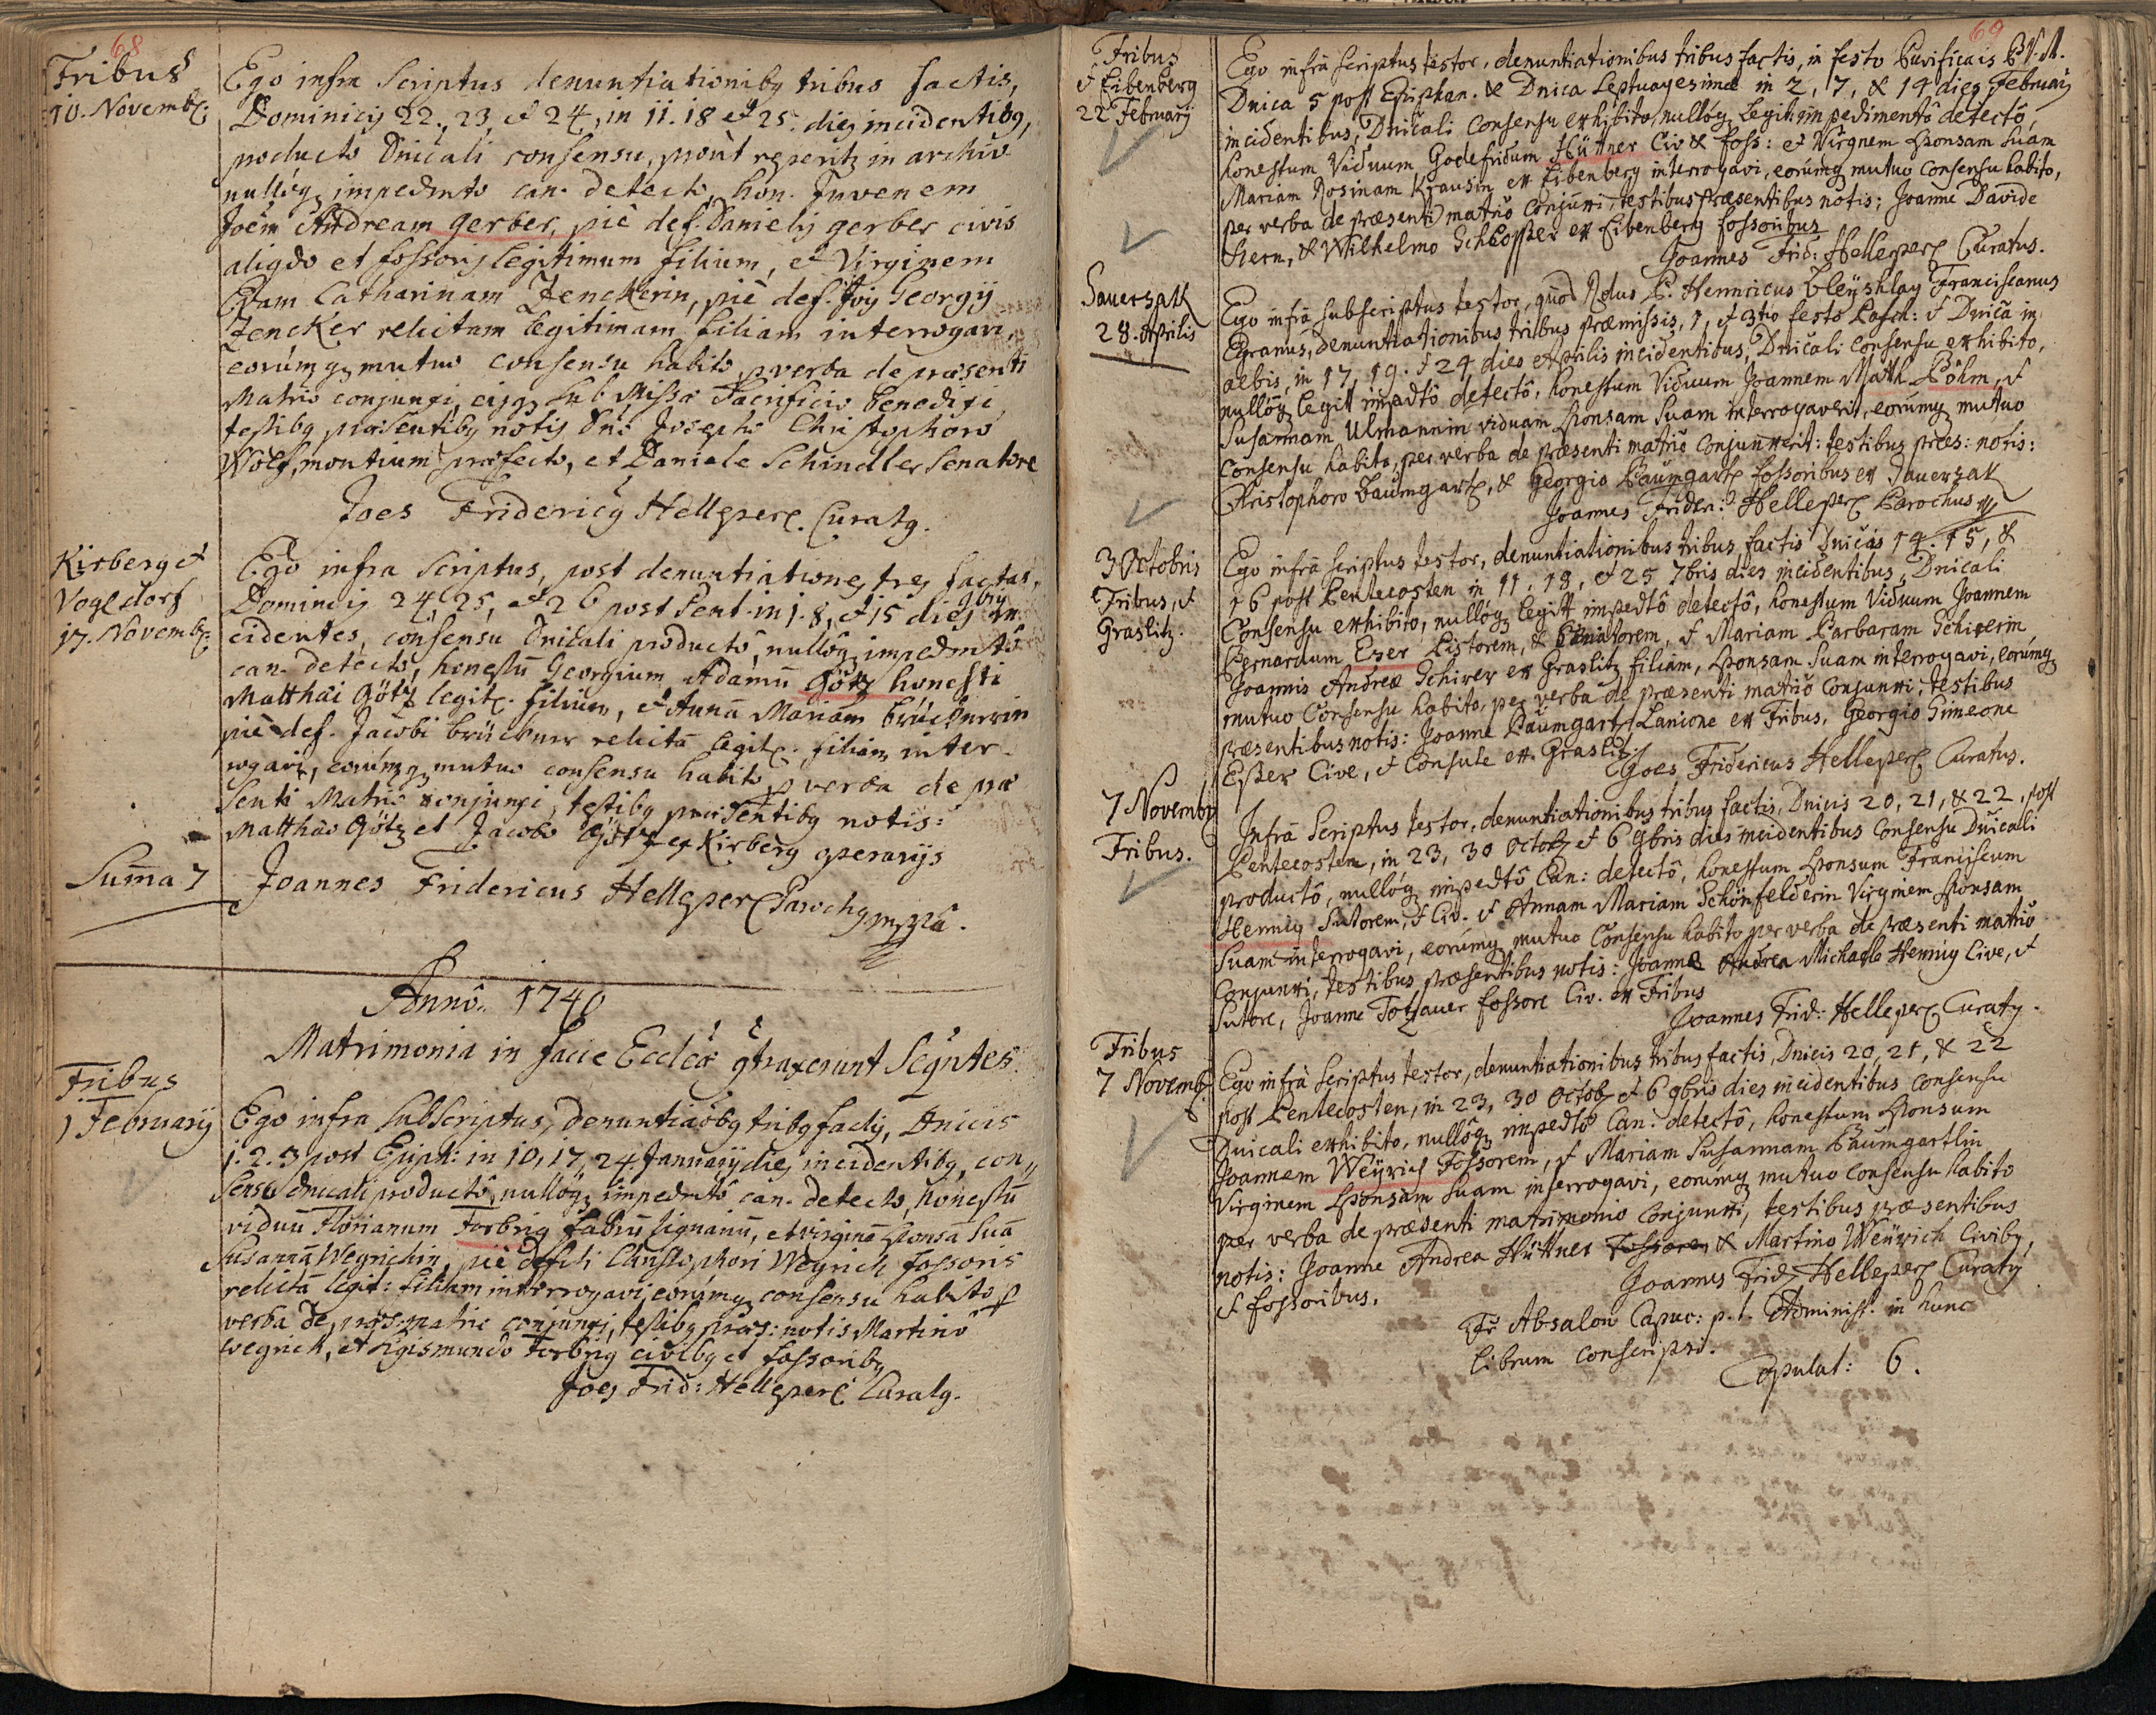 68
Tribus
10. Novemb:
Ego infra scriptus denuntiationibg tribus factis,
Dominicis 22., 23, et 24, in 11. 18 et 25. dies incidentibg,
producto Dnicali consensu, prout in archiv.
nullóq impedmto can. detecto, hon. Juvenem
Joem Andream gerber, piè def. Danielis gerber civis
et fossoris legitimum filium, et Virginem
Evam Catharinam Zenckerin, piè def. Georgij
Zencker relictam legitimam filiam interrogavi,
eorúmq mutuo consensu habito p verba de præsenti
Matrio conjunxi, sub Missæ Sacrificio benedixi
testibg præsentibg notis Dno Josepho Christophoro
Wolf, montium præfecto, et Daniele Schindler Senatore
Joes Fridericg Hellgper Curatg.
Kirberg et
Vogldorf
17. Novemb:
Ego infra scriptus, post denuntiationes tres factas,
Dominicis 24, 25, et 26 post Pent. in 1. 8, et 15 dies 9bris in
cidentes, consensu Dnicali productô, nullôq impedmtô
can. detecto, honestū Georgium Adamū Götz honesti
Matthæi Götz legit. filium, et Annā Mariam brücknerin
piè def. Jacobi brückner relictā legit. filiam inter-
rogavi, eorúmq mutuo consensu habito p verba de præ
senti Matrio conjunxi, testibg præsentibg notis:
Matthæo Götz et Jacobo Götz ex Kirberg operarijs
Joannes Fridericus Hellgper Parochg mppia.
Suma 7
Annô. 1740
Matrimonia in facie Ecclæ gtraxerunt Segntes.
Tribus
1 Februarij
Ego infra subscriptus, denuntiaõbg tribg factis, Dnicis
1. 2. 3 post Epiph: in 10, 17, 24. Januarij dies incidentibg, con„
sensu dnicali productô, nullôq impedmtô can. detecto, honestū
viduū Florianum Forbrig fabrū lignariū, et virginē sponsā suā
Susannā Weyrichin, piè defcti Christophori Weyrich fossoris
relictā legit: filiam interrogavi, eorúmq consensu habito p
verba de præs: matrio conjunxi, testibg præs: notis Martino
Weyrich, et Sigismundo Forbrig civibg et fossoribg
Joes Frid: Hellgper Curatg.
69
Tribus
et Eibenberg
22 February
Ego infrà scriptus testor, denuntiationibus tribus factis, in festo Purificais B.V.M.
Dnica 5 post Epiphan. & Dnica Septuagesimæ in 2, 7, & 14 dies Februarij
incidentibus, Dnicali consensu exhibito, nullóq legit impedimentô detectô,
honestum Viduum Godefridum Hüttner Civ & foss: et Virgnem sponsam suam
Mariam Rosinam Krausin ex Eibenberg interrogavi, eorúmq mutuo consensu habito,
per verba de præsenti matrio conjunxi, testibus præsentibus notis; Joanne Davide
Stern, & Wilhelmo Schlosser ex Eibenberg fossoribus
Joannes Frid: Hellegper Curatus.
Sauersak
28. Aprilis
Ego infrà subscriptus testor, quod Rdus P. Hennricus Bleyshlag Franciscanus
Egranus, denuntiationibus tribus præmissis, 1, et 3tio festo Pasch: et Dnica in
albis, in 17, 19. et 24 dies Aprilis incidentibus, Dnicali consensu exhibito,
nullóq legitt impedtô detectô, honestum Viduum Joannem Math Böhm, et
Susannam Ulmannin viduam sponsam suam interrogaverit, eorúmq mutuo
consensu habito, per verba de præsenti matrio conjunxerit: testibus præs: notis:
Christophoro Baumgartl, & Georgio Baumgartl fossoribus ex Sauersak
Joannes Fridr: Hellegper Parochus
3 Octobris
Tribus, et
Graslitz.
Ego infrà scriptus testor, denuntiationibus tribus factis Dnicis 14. 15, &
16 post Pentecosten in 11, 18, et 25 7bris dies incidentibus, Dnicali
Consensu exhibito, nullóq legitt impedtô detectô, honestum Viduum Joannem
Bernardum Exer Pistorem, & et Mariam Barbaram Schirerin
Joannis Andreæ Schirer ex Graslitz filiam, sponsam suam interrogavi, eorúmq
mutuo Consensu habito, per verba de præsenti matrio conjunxi, testibus
præsentibus notis: Joanne Baumgartl Lanione ex Tribus, Georgio Simeone
Esser Cive, et Consule ex Graslitz
Joes Fridericus Hellegper Curatus.
7 Novemb
Tribus.
Infrà scriptus testor, denuntiationibus tribus factis, Dnicis 20, 21, & 22, post
Pentecosten, in 23, 30 Octob et 6 9bris dies incidentibus consensu Dnicali
productô, nullóq impedtô Can: detectô, honestum sponsum Franciscum
Hennig Sutorem, et Civ. et Annam Mariam Schönfelderin Virginem sponsam
suam interrogavi, eorúmq mutuo Consensu habito per verba de præsenti matrio
conjunxi, testibus præsentibus notis: Joanne Andrea Michaele Hennig Cive, et
Sutore, Joanne Totzauer fossore Civ. ex Tribus
Joannes Frid: Hellegper Curatg.
Tribus
7 Novemb.
Ego infrà scriptus testor, denuntiationibus tribus factis, Dnicis 20, 21, & 22
post Pentecosten, in 23, 30 Octob et 6 9bris dies incidentibus consensu
Dnicali exhibito, nullóq impedtô Can. detectô, honestum sponsum
Joannem Weÿrich Fossorem, et Mariam Susannam Baumgartlin
Virginem sponsam suam interrogavi, eorúmq mutuo consensu habito
per verba de præsenti matrimonio conjunxi, testibus præsentibus
notis: Joanne Andrea Hüttner fossore & Martino Weÿrich Civibg,
et fossoribus.
Joannes Frid Hellegper Curatg
Fr Absalon Capuc: p. t. Administ. in hunc
librum conscripsi.
Copulat: 6.